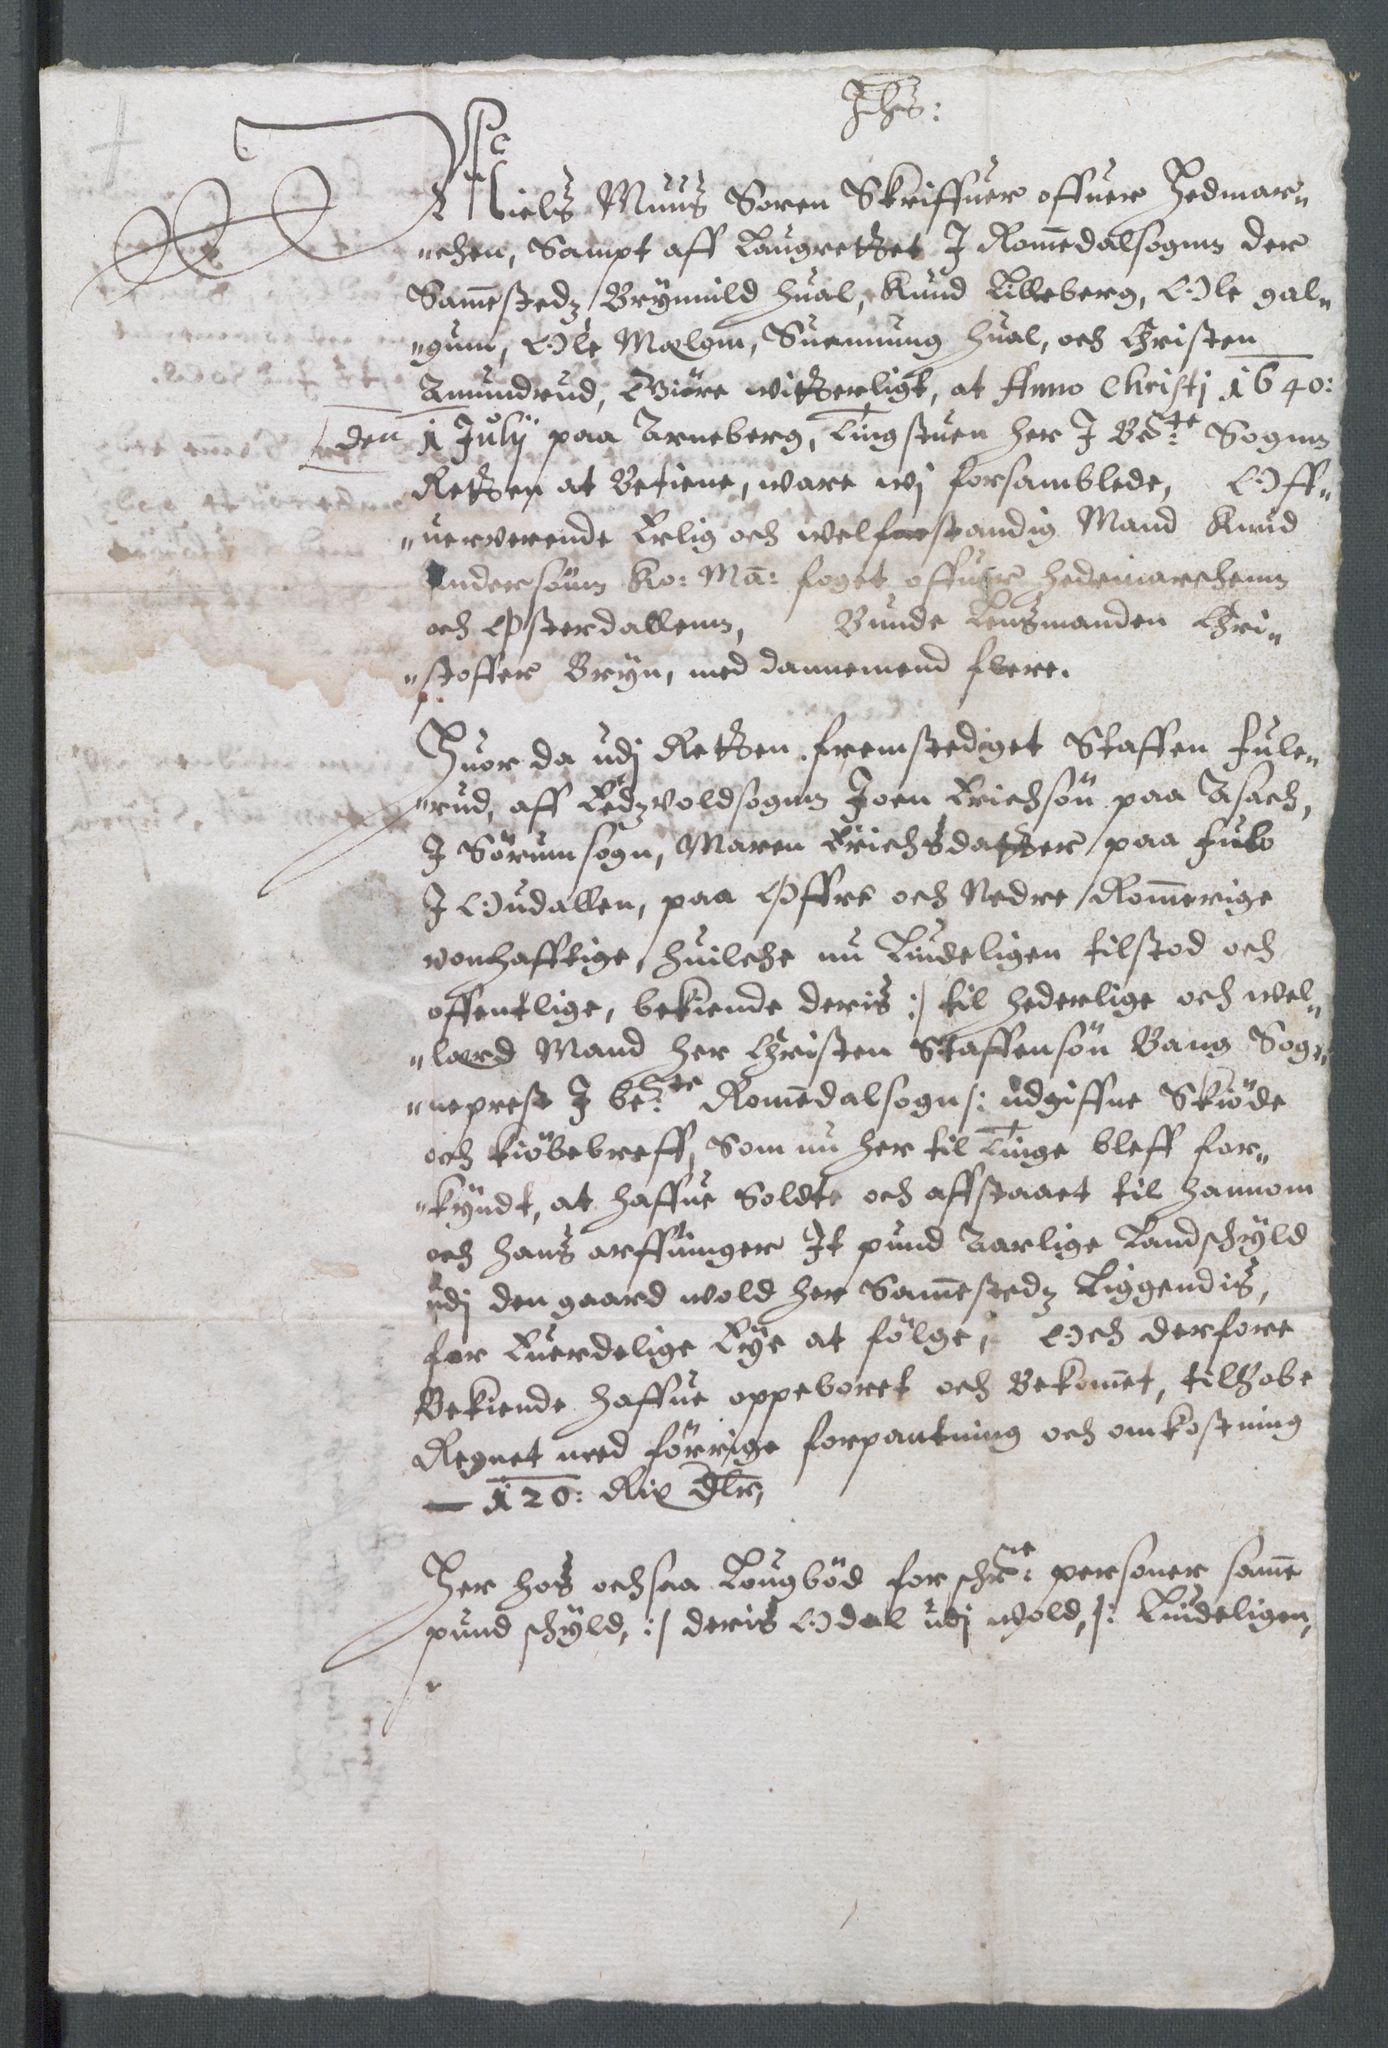 Jhs:
Niels Muus Soren Skriffuer offuer Hedmar„
„chen, Sampt aff Laugrettet J Romedalsognn der
Samestedz, Brynnild Hual, Knud Lilleberg, Ole gal„
„gum, Ole Mælgm, Suennung Hual, och Christen
Amundrud, Giöre witterligt, at Anno Christi 1640:
den 1 July paa Arneberg, Tingstuen her J Be:te Sognn
Retten at Betiene, ware wj forsamblede, Off„
„uerwerende Erlig och welforstandig Mand Knud
Andersönn Ko: Ma: foget offuer Hedemarchenn
och Østerdallenn, Bunde Lensmanden Chri„
„stoffer Bryn, med dannemend flere.
Huor da udj Retten fremstediget Staffen Jule„
„rud, aff Edzvoldsognn Joen Erichsön paa Asach,
J Sörumsogn, Maren Erichsdatter paa Fulo
J Oudallen, paa Øffre och Nedre Romerige
wonhafftige, huilche nu Liudeligen tilstod och
offentlige, bekiende deris :/ til hederlige och wel„
„lærd Mand her Christen Staffensön Bang Sog„
„neprest J be:te Romedalsogn /: udgiffne Skiöde
och kiöbebreff, Som nu her til Tinge bleff for„
„kyndt, at haffue Soldte och affstaaet til hannom
och hans arffuinger Jt pund Aarlige Landschyld
udj den gaard wold her Samestedz Liggendis,
for Euerdelige Eye at fölge, Och derfore
Bekiende haffue oppeboret och Bekomet, tilhobe
Regnet med förrige forpantning och omkostning
— 120: Rix Dlr,
Her hos ochsaa Lougböd forschr:ne personer same
pund schyld, :/ deris Odal udj wold, /: Liudeligen,